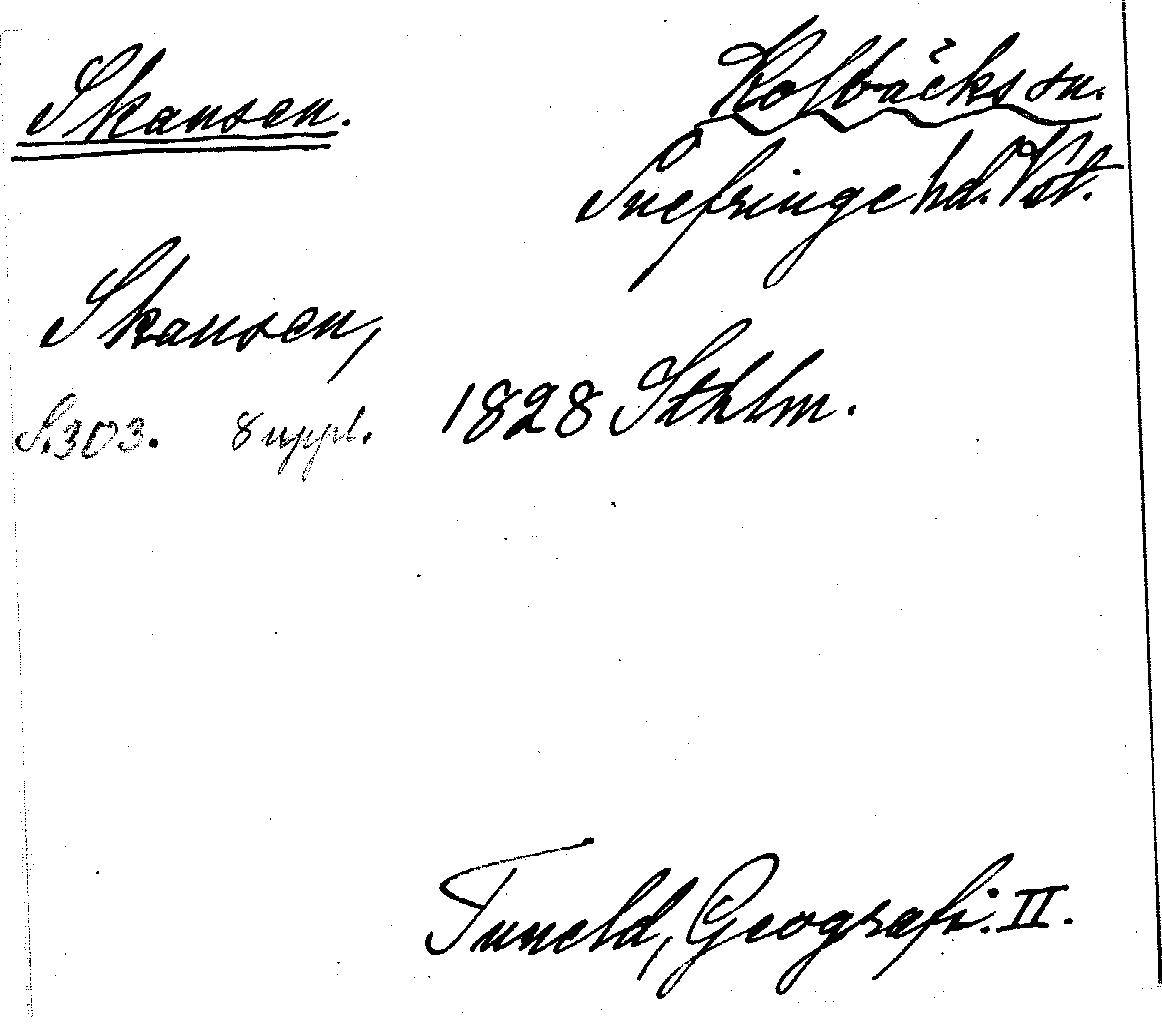 Skansen.
Kolbäcks sn.
Snefringe hd. Vst.
Skansen,
S. 303. 8 uppl. 1828 Sthlm.
Tuneld, Geografi. II.